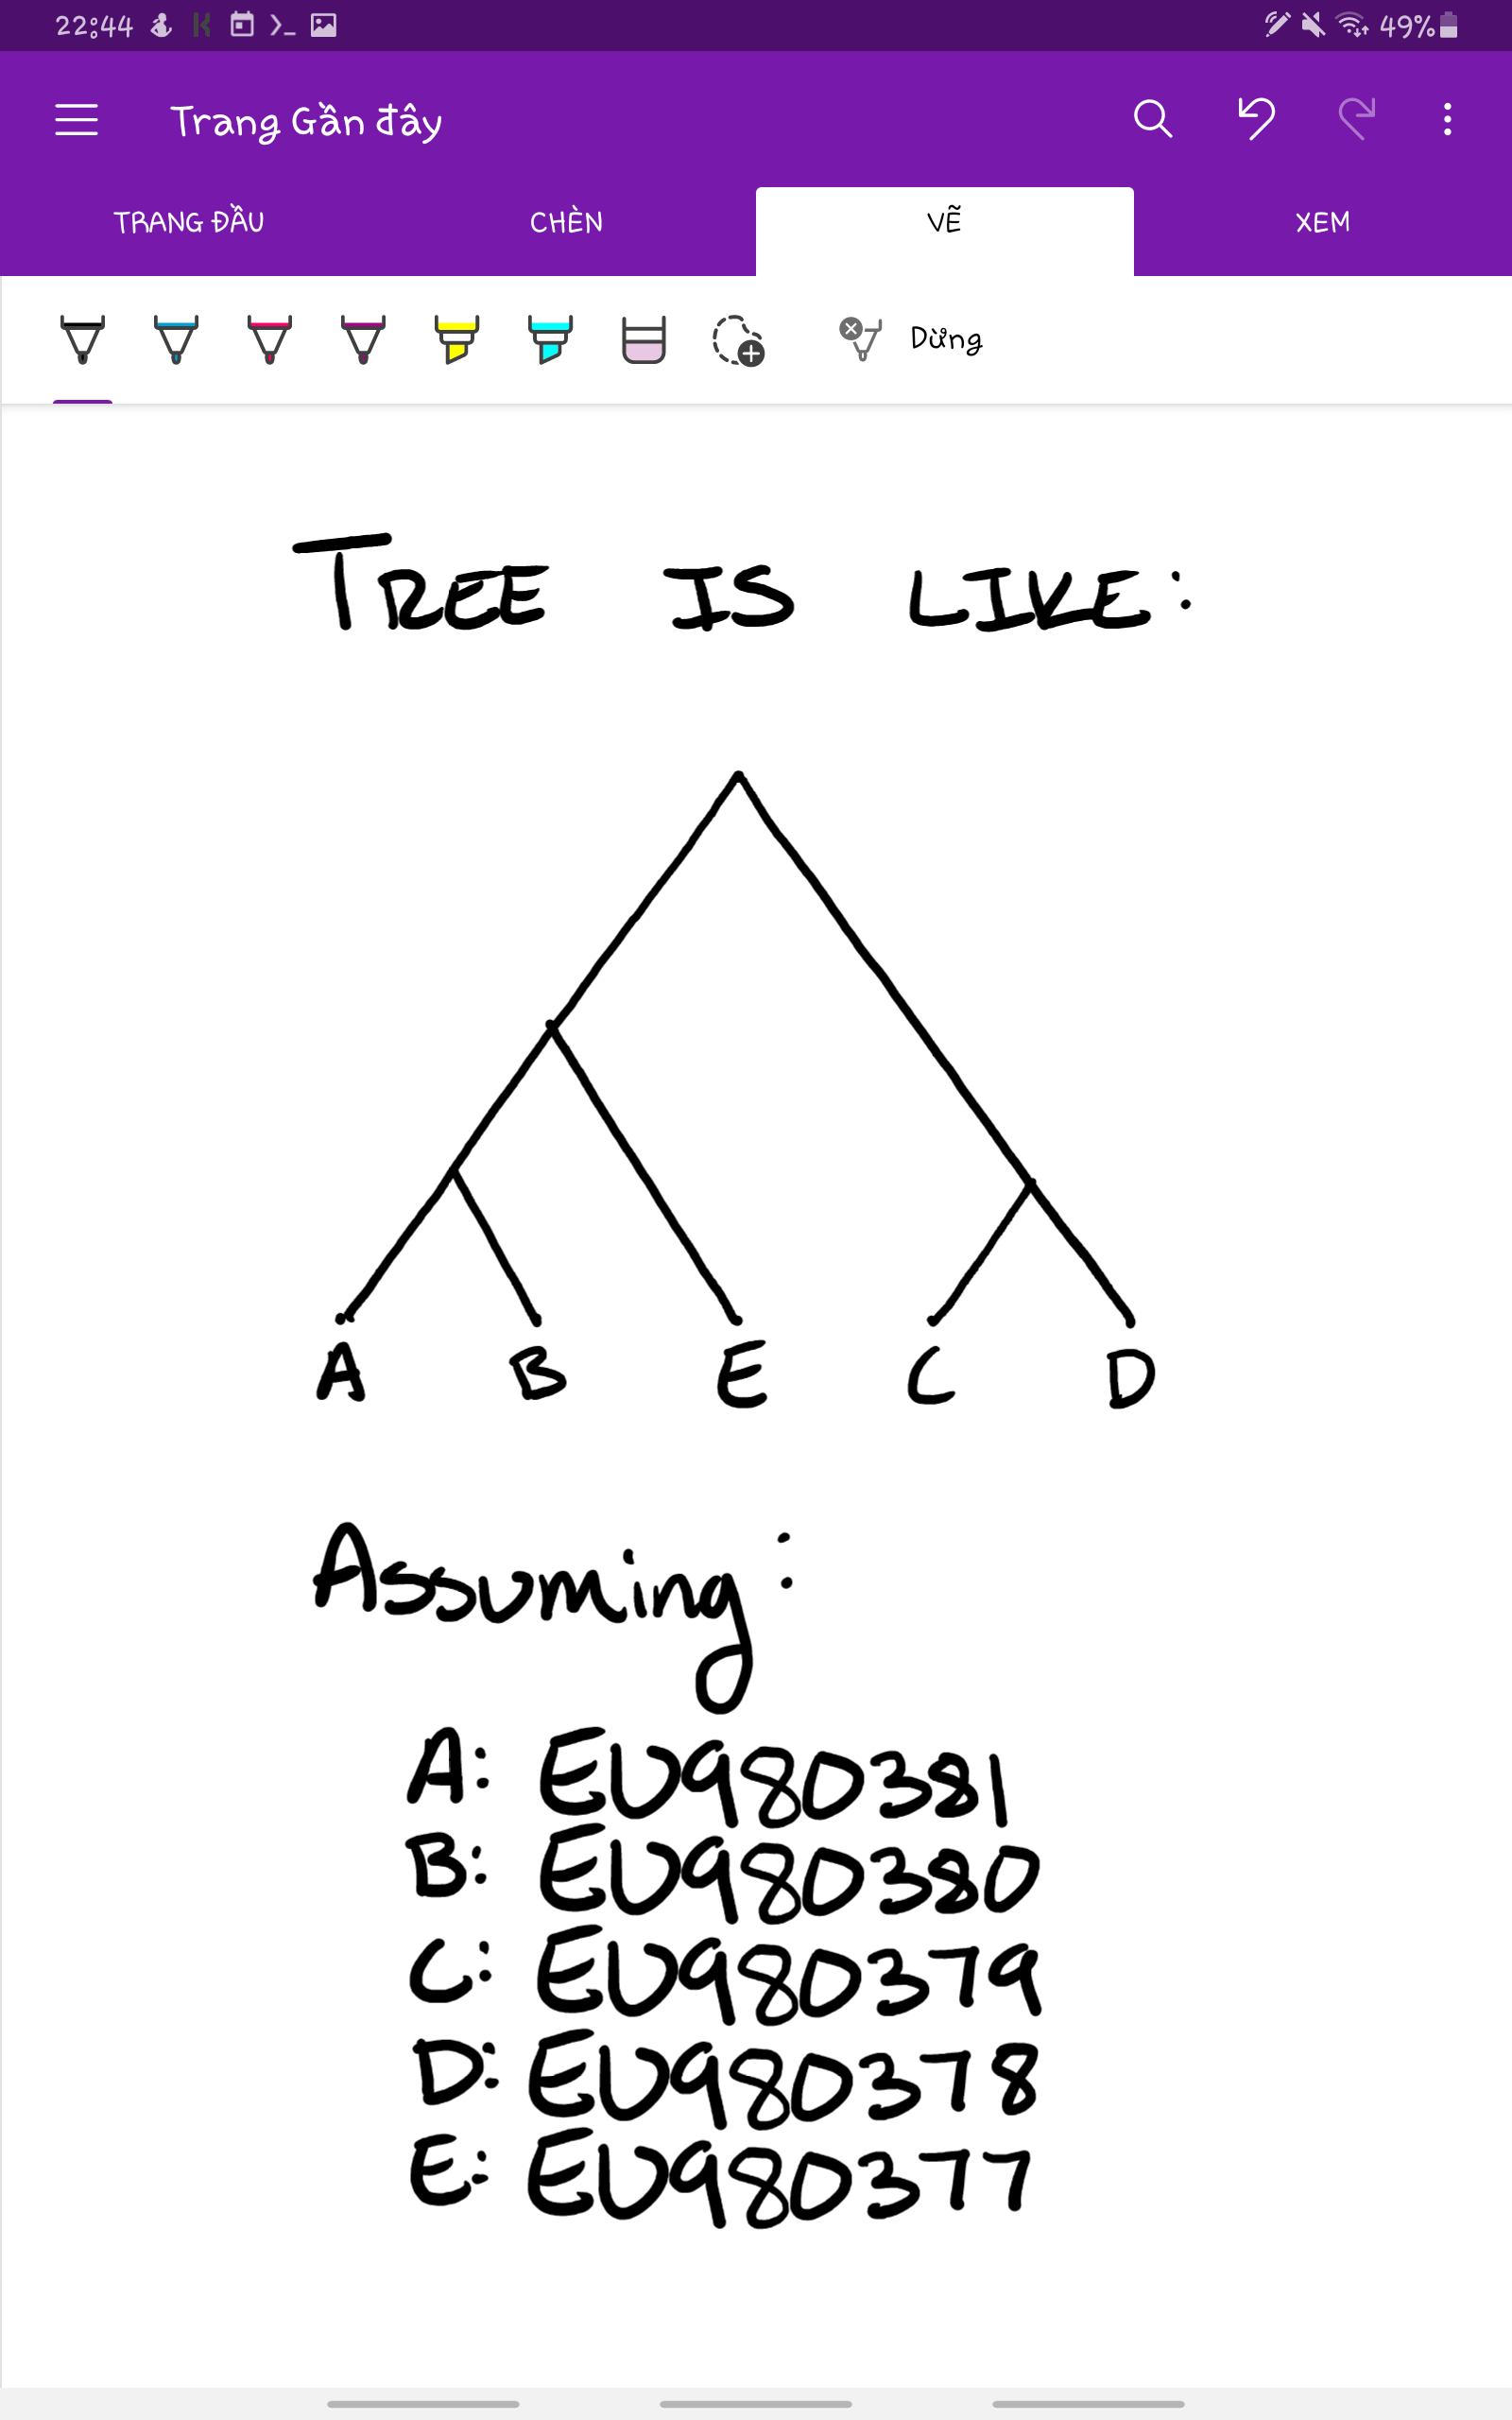 22:44
49%
Trang Gần đây
TRANG ĐẦU CHÈN VẼ XEM
Dừng
TREE IS LIKE:
A B E C D
Assuming:
A: EU980381
B: EU980380
C: EU980379
D: EU980378
E: EU980377